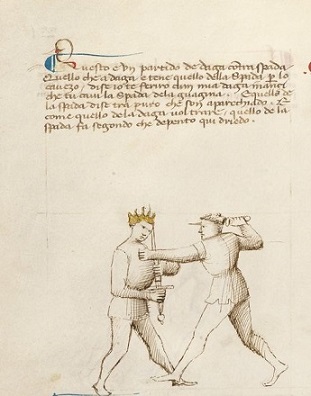 Questo è un partido de daga contra spada
Quello che a daga e tene quello della spada p lo
cavezo, dise io te feriro cum mia daga inanci
che tu cavi la spada dela guagina. E quello de
la spada dise tra puro che son aparechiado. E
come quello de la daga vol trare, quello de la
spada fa segondo che depento qui driedo.